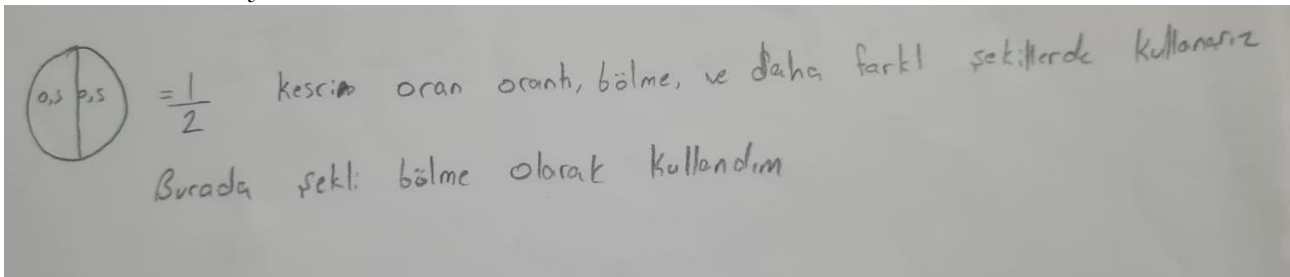 0,5 0,5 = 1/2 kesrin oran orantı, bölme, ve daha farklı şekillerde kullanarız
Burada şekli bölme olarak kullandım